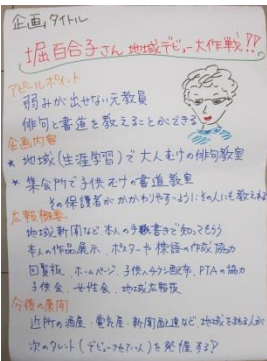 企画タイトル
堀百合子さん 地域デビュー大作戦!!
アピールポイント
弱みが出せない元教員
俳句と書道を教えることができる
企画内容
★ 地域(生涯学習)で大人むけの俳句教室
★ 集会所で子供むけの書道教室
その保護者がかかわりやすいようにその人にも教える
広報概要
地域新聞など本人の手書きで知ってもらう
本人の作品展示、ポスターや標語の作成協力
回覧板、ホームページ、子供へチラシ配布、PTAの協力
子供会、女性会、地域広報板
今後の展開
近所の酒屋、電気屋、新聞配達など、地域を知る人が
次のタレント(デビューさせたい人)を発掘する!?